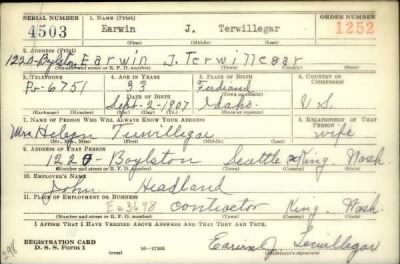 SERIAL NUMBER 1. NAME (Print) ORDER NUMBER
4503 Earwin J. Terwillegar 1252
(First) (Middle) (Last)
2. ADDRESS (Print)
1220-Boylston Earwin J. Terwillegar
(Number and street or R. F. D. number) (Town) (County) (State)
3. TELEPHONE 4. AGE IN YEARS 5. PLACE OF BIRTH 6. COUNTRY OF CITIZENSHIP
Pr-6751 33 Ferdinand
DATE OF BIRTH
Sept-2-1907 Idaho. U.S.
(Exchange) (No.) (Mo.) (Day) (Yr.) (State or country)
7. NAME OF PERSON WHO WILL ALWAYS KNOW YOUR ADDRESS 8. RELATIONSHIP OF THAT PERSON
Mrs. Helen Terwillegar wife
(Mr., Mrs., Miss) (First) (Middle) (Last)
9. ADDRESS OF THAT PERSON
1220-Boylston Seattle King Wash.
(Number and street or R. F. D. number) (Town) (County) (State)
10. EMPLOYER'S NAME
John Headland
11. PLACE OF EMPLOYMENT OR BUSINESS
Ea3698 contractor King. Wash.
(Number and street or R. F. D. number) (Town) (County) (State)
I AFFIRM THAT I HAVE VERIFIED ABOVE ANSWERS AND THAT THEY ARE TRUE.
REGISTRATION CARD
D. S. S. Form 1 16-17105 Earwin J. Terwillegar
(Registrant's signature)
298